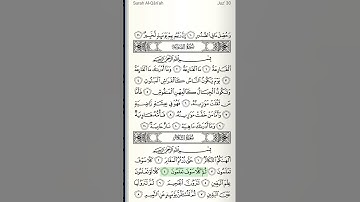 Surah Al-Qari'ah Juz' 30
وَحُصِّلَ مَا فِي ٱلصُّدُورِ ١٠ إِنَّ رَبَّهُم بِهِمْ يَوْمَئِذٍ لَّخَبِيرٌۢ ١١
سُورَةُ القَارِعَةِ
بِسْمِ ٱللَّهِ ٱلرَّحْمَٰنِ ٱلرَّحِيمِ
ٱلْقَارِعَةُ ١ مَا ٱلْقَارِعَةُ ٢ وَمَآ أَدْرَىٰكَ مَا ٱلْقَارِعَةُ
٣ يَوْمَ يَكُونُ ٱلنَّاسُ كَٱلْفَرَاشِ ٱلْمَبْثُوثِ
٤ وَتَكُونُ ٱلْجِبَالُ كَٱلْعِهْنِ ٱلْمَنفُوشِ ٥ فَأَمَّا
مَن ثَقُلَتْ مَوَٰزِينُهُۥ ٦ فَهُوَ فِي عِيشَةٍ رَّاضِيَةٍ
٧ وَأَمَّا مَنْ خَفَّتْ مَوَٰزِينُهُۥ ٨ فَأُمُّهُۥ هَاوِيَةٌ
٩ وَمَآ أَدْرَىٰكَ مَا هِيَهْ ١٠ نَارٌ حَامِيَةٌۢ ١١
سُورَةُ التَّكَاثُرِ
بِسْمِ ٱللَّهِ ٱلرَّحْمَٰنِ ٱلرَّحِيمِ
أَلْهَىٰكُمُ ٱلتَّكَاثُرُ ١ حَتَّىٰ زُرْتُمُ ٱلْمَقَابِرَ ٢ كَلَّا سَوْفَ
تَعْلَمُونَ ٣ ثُمَّ كَلَّا سَوْفَ تَعْلَمُونَ ٤ كَلَّا لَوْ تَعْلَمُونَ
عِلْمَ ٱلْيَقِينِ ٥ لَتَرَوُنَّ ٱلْجَحِيمَ ٦ ثُمَّ لَتَرَوُنَّهَا
عَيْنَ ٱلْيَقِينِ ٧ ثُمَّ لَتُسْـَٔلُنَّ يَوْمَئِذٍ عَنِ ٱلنَّعِيمِ ٨